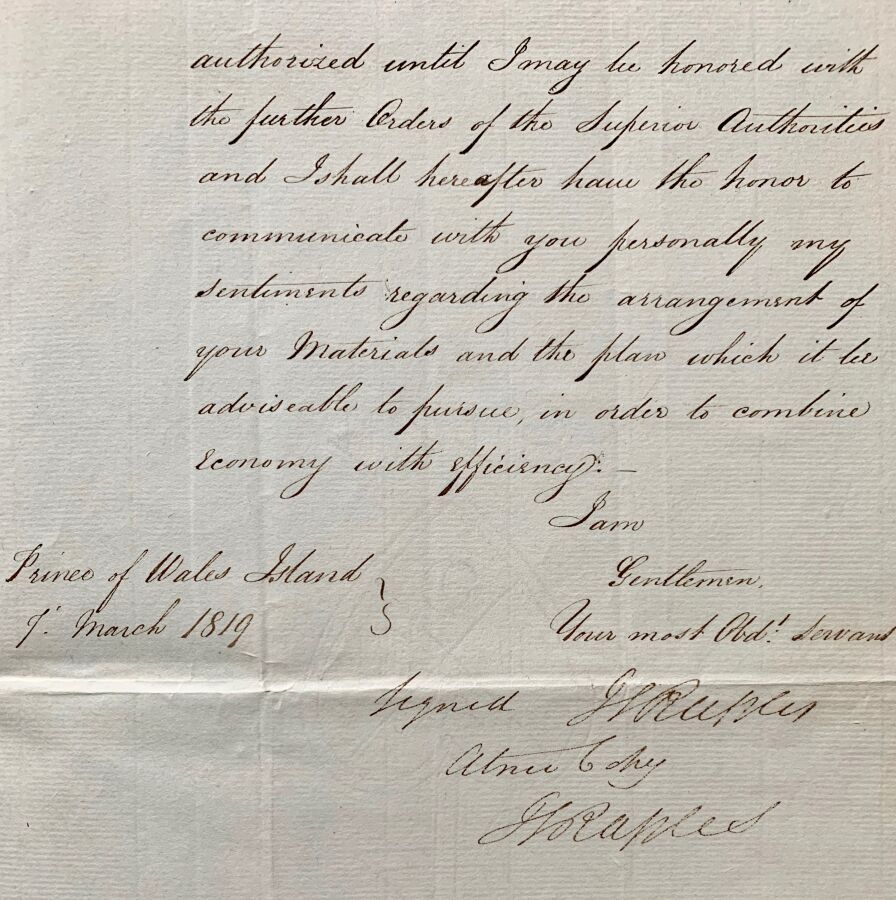 authorized until I may be honored with
the further Orders of the Superior Authorities
and I shall hereafter have the honor to
communicate with you personally my
sentiments regarding the arrangement of
your Materials and the plan which it be
adviseable to pursue, in order to combine
Economy with efficiency:—
I am
Prince of Wales Island
Gentlemen,
7. March 1819
Your most Obdt. Servant
Signed TSRaffles
A true Copy
TSRaffles